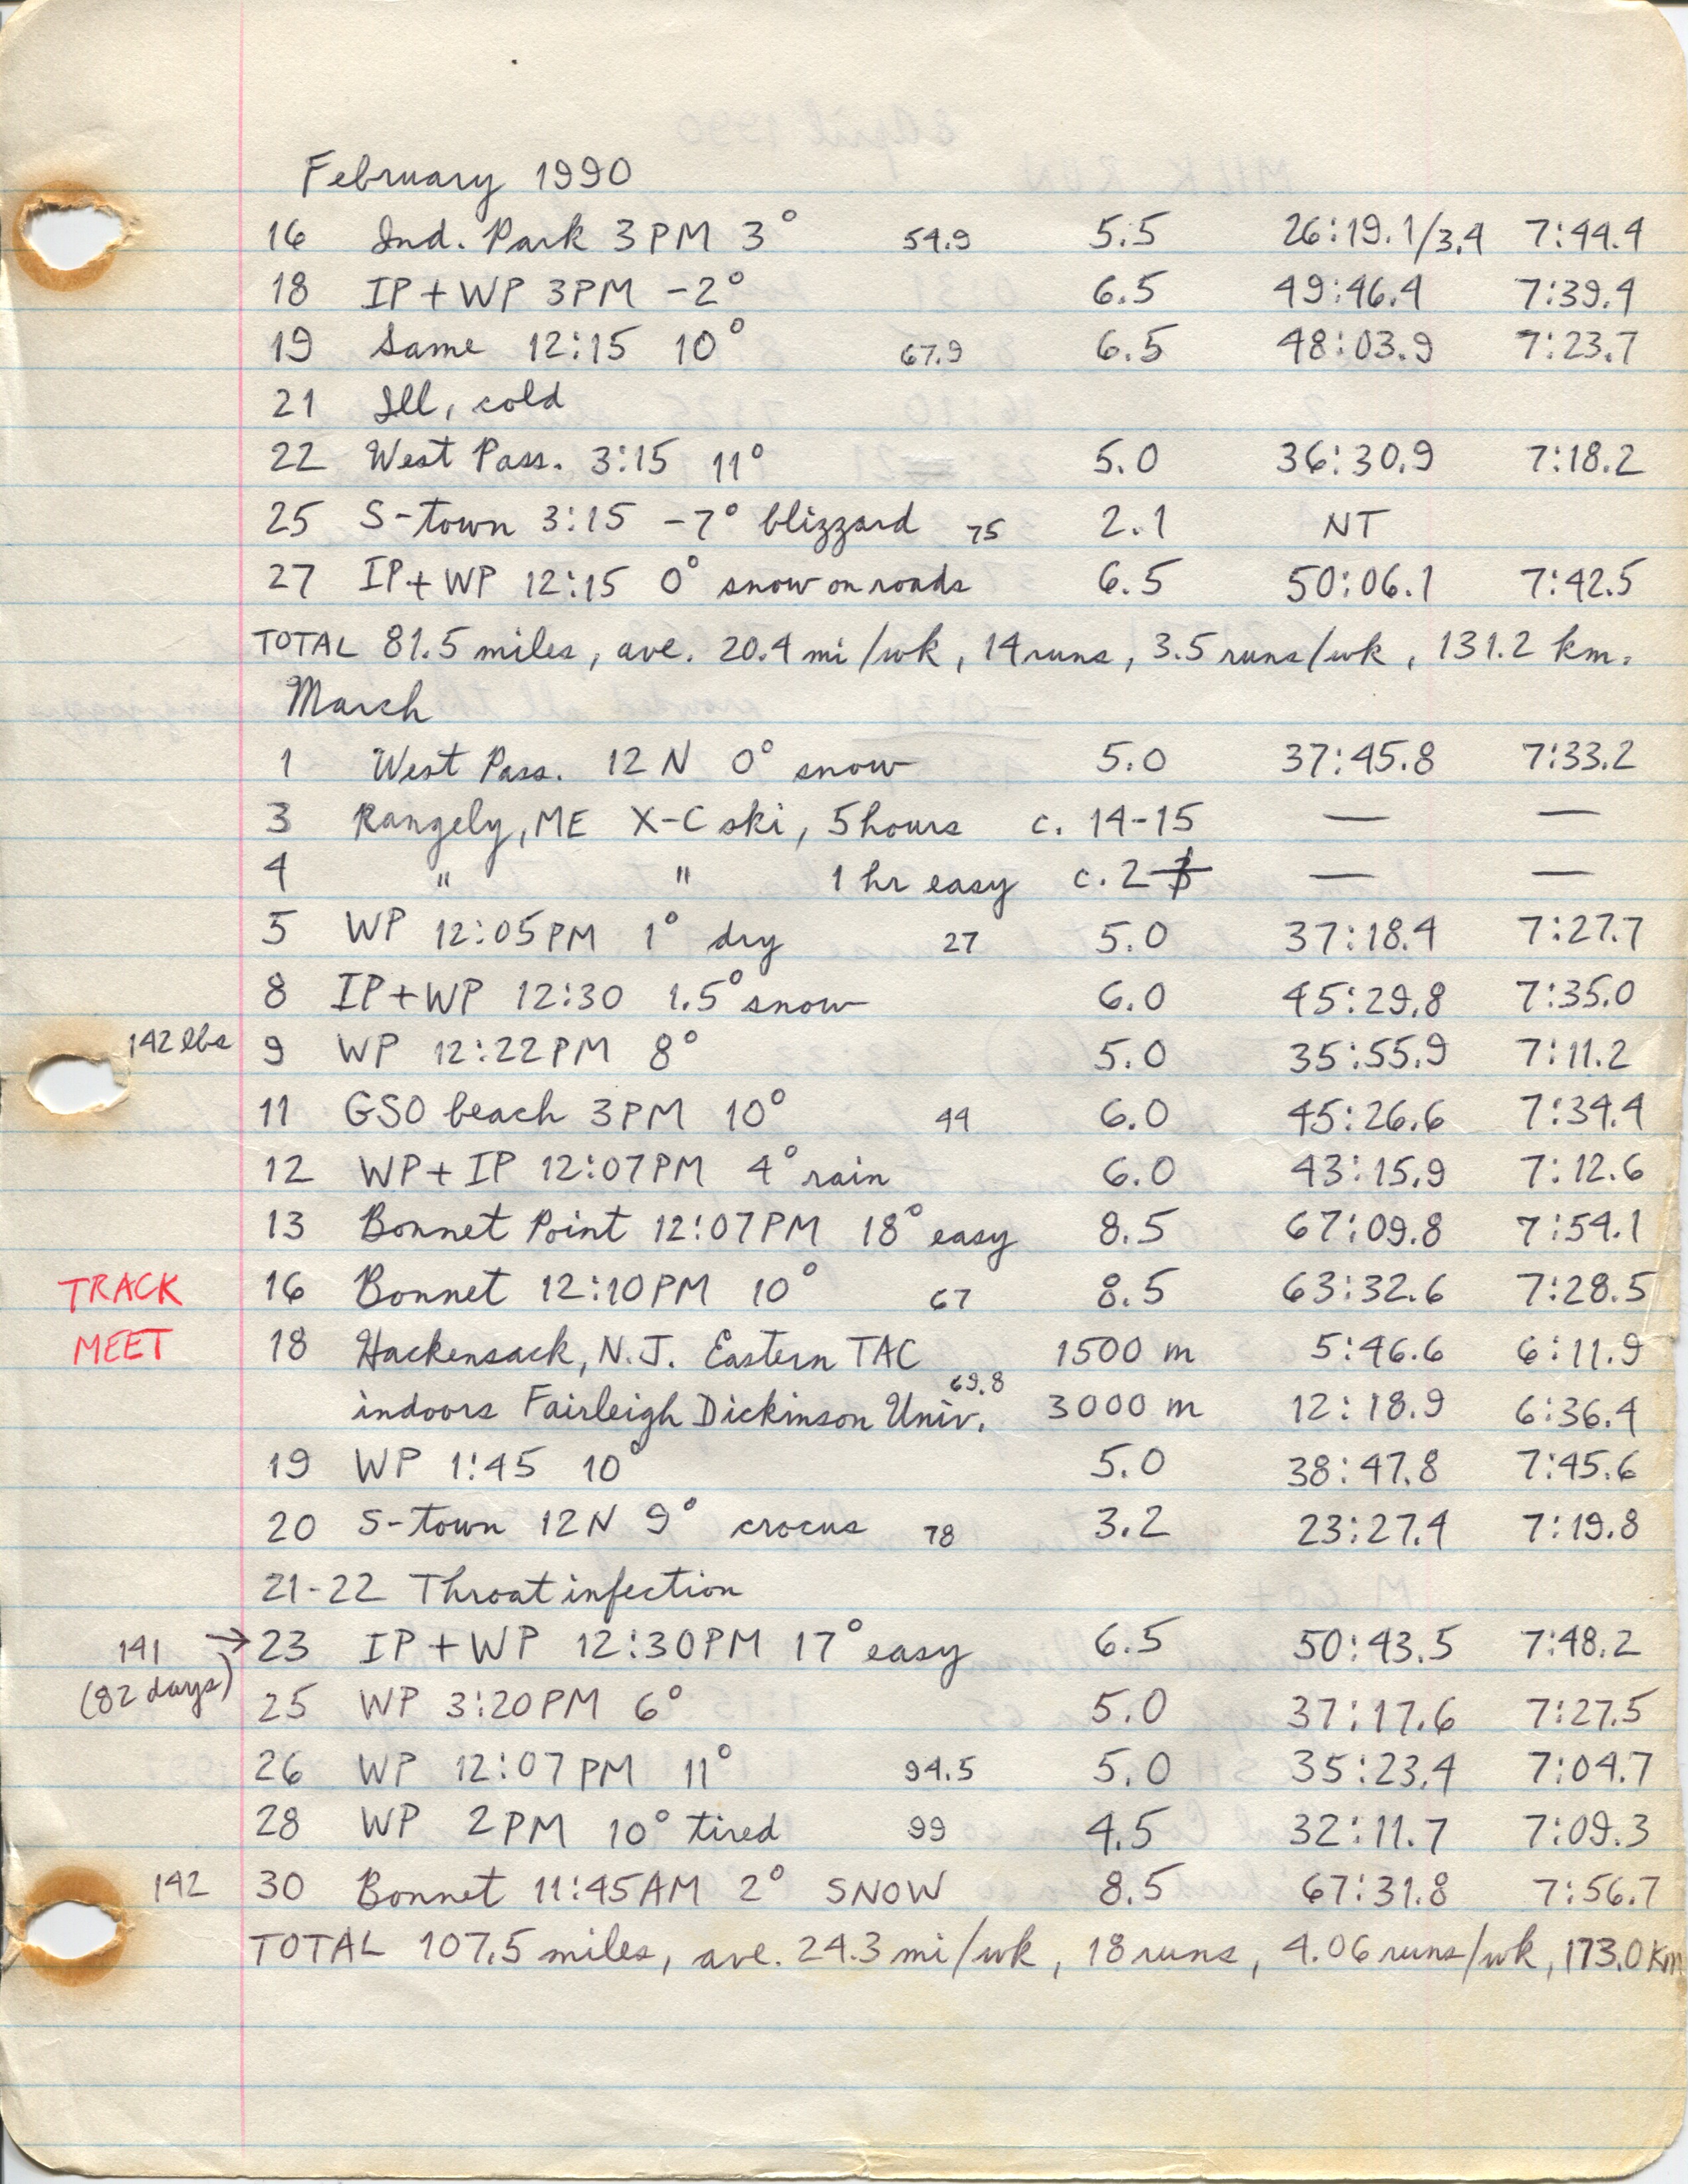 February 1990
16 Ind. Park 3PM 3° 54.9 5.5 26:19.1/3.4 7:44.4
18 IP+WP 3PM -2° 6.5 49:46.4 7:39.4
19 Same 12:15 10° 67.9 6.5 48:03.9 7:23.7
21 Ill, cold
22 West Pass. 3:15 11° 5.0 36:30.9 7:18.2
25 S-town 3:15 -7° blizzard 75 2.1 NT
27 IP+WP 12:15 0° snow on roads 6.5 50:06.1 7:42.5
TOTAL 81.5 miles, ave. 20.4 mi/wk, 14 runs, 3.5 runs/wk, 131.2 km.
March
1 West Pass. 12N 0° snow 5.0 37:45.8 7:33.2
3 Rangely, ME X-C ski, 5 hours c. 14-15 — —
4 " " 1 hr easy c. 2 — —
5 WP 12:05PM 1° dry 27 5.0 37:18.4 7:27.7
8 IP+WP 12:30 1.5° snow 6.0 45:29.8 7:35.0
142 lbs 9 WP 12:22PM 8° 5.0 35:55.9 7:11.2
11 GSO beach 3PM 10° 44 6.0 45:26.6 7:34.4
12 WP+IP 12:07PM 4° rain 6.0 43:15.9 7:12.6
13 Bonnet Point 12:07PM 18° easy 8.5 67:09.8 7:54.1
TRACK 16 Bonnet 12:10PM 10° 67 8.5 63:32.6 7:28.5
MEET 18 Hackensack, N.J. Eastern TAC 1500 m 5:46.6 6:11.9
indoors Fairleigh Dickinson Univ. 69.8 3000 m 12:18.9 6:36.4
19 WP 1:45 10° 5.0 38:47.8 7:45.6
20 S-town 12N 9° crocus 78 3.2 23:27.4 7:19.8
21-22 Throat infection
141 → 23 IP+WP 12:30PM 17° easy 6.5 50:43.5 7:48.2
(82 days) 25 WP 3:20PM 6° 5.0 37:17.6 7:27.5
26 WP 12:07PM 11° 94.5 5.0 35:23.4 7:04.7
28 WP 2PM 10° tired 99 4.5 32:11.7 7:09.3
142 30 Bonnet 11:45AM 2° SNOW 8.5 67:31.8 7:56.7
TOTAL 107.5 miles, ave. 24.3 mi/wk, 18 runs, 4.06 runs/wk, 173.0 Km